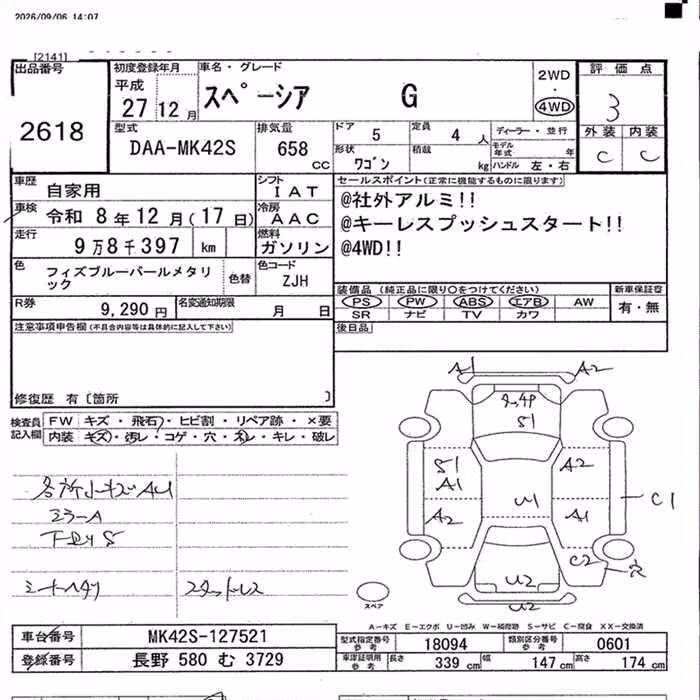 2026/09/06 14:07
[2141]
出品番号
2618
初度登録年月
平成
27 12 月
車名・グレード
スペーシア G
2WD
・
4WD
評価点
3
外装 内装
C C
型式
DAA-MK42S
排気量
658
cc
ドア
5
定員
4 人
形状
ワゴン
積載
kg
ディーラー・並行
モデル年式 年
ハンドル 左・右
車歴
自家用
シフト
IAT
車検
令和 8年12月(17日)
冷房
AAC
走行
9万8千397 km
燃料
ガソリン
色
フィズブルーパールメタリック
色替
色コード
ZJH
R券
9,290 円
名変通知期限
月 日
セールスポイント(正常に機能するものに限ります)
@社外アルミ!!
@キーレスプッシュスタート!!
@4WD!!
装備品 (純正品に限り○をつけてください)
PS PW ABS エアB AW
SR ナビ TV カワ
新車保証書
有・無
後日品
注意事項申告欄(不具合内容等は具体的に記入して下さい)
修復歴 有〔箇所 〕
検査員記入欄
FW キズ・飛石・ヒビ割・リペア跡・×要
内装 キズ・汚レ・コゲ・穴・ネレ・キレ・破レ
各所小キズAU
ミラーA
下回りS
シートヘタリ スタッドレス
A1 A2
S1
S1
A1 A2
A2 U1 A1
C1
C2 穴
U2
U2
スペア
A-キズ E-エクボ U-凹み W-補修跡 S-サビ C-腐食 XX-交換済
車台番号
MK42S-127521
登録番号
長野 580 む 3729
型式指定番号
参考
18094
類別区分番号
参考
0601
車庫証明用
参考
長さ 339 cm 幅 147 cm 高さ 174 cm